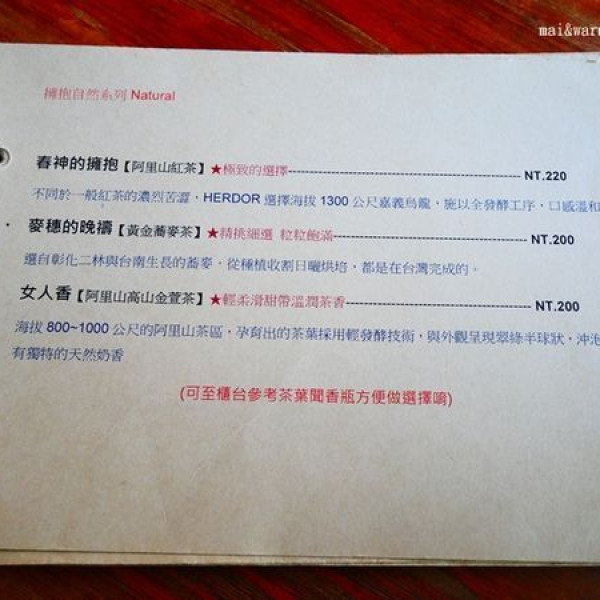 mai&waru
擁抱自然系列 Natural
春神的擁抱【阿里山紅茶】★極致的選擇---------------------------------------- NT.220
不同於一般紅茶的濃烈苦澀，HERDOR 選擇海拔 1300 公尺嘉義烏龍，施以全發酵工序，口感溫和
麥穗的晚禱【黃金蕎麥茶】★精挑細選 粒粒飽滿---------------------------------- NT.200
選自彰化二林與台南生長的蕎麥，從種植收割日曬烘培，都是在台灣完成的。
女人香【阿里山高山金萱茶】★輕柔滑甜帶溫潤茶香-------------------------------- NT.200
海拔 800~1000 公尺的阿里山茶區，孕育出的茶葉採用輕發酵技術，與外觀呈現翠綠半球狀，沖泡
有獨特的天然奶香
(可至櫃台參考茶葉聞香瓶方便做選擇唷)